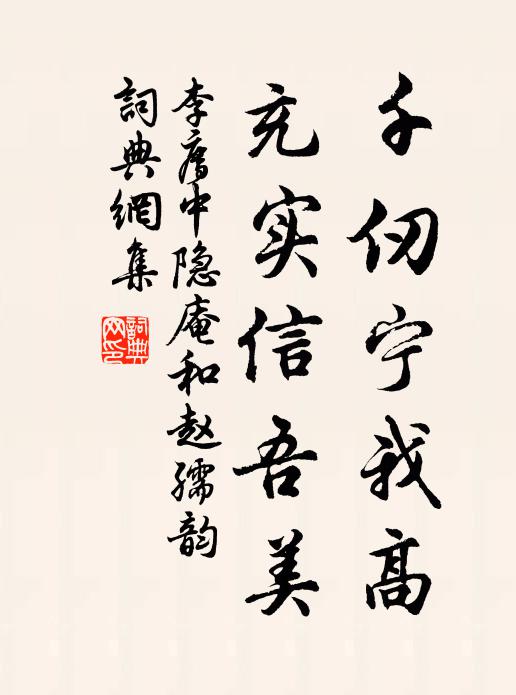 千仞宁我高
充实信吾美
李膺中隐庵和赵孺韵
詞典網集
詞典网印